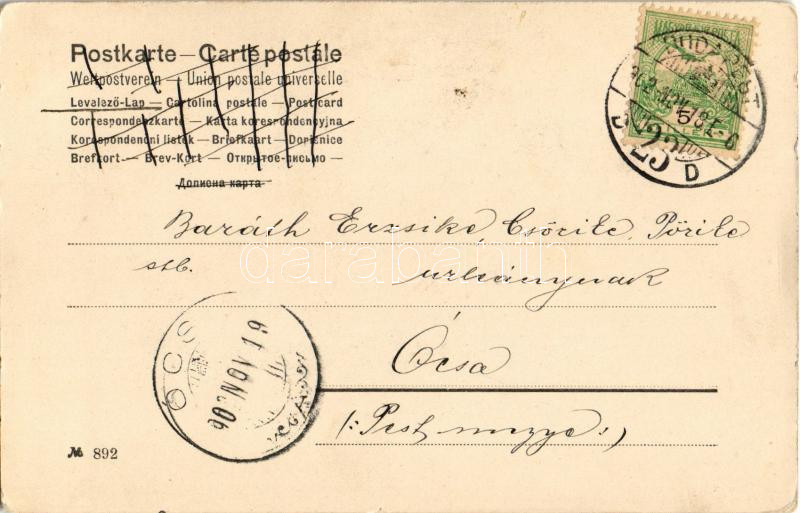 Postkarte — Carte postale
Weltpostverein — Union postale universelle
Levelező-Lap — Cartolina postale — Post card
Correspondenzkarte — Karta korespondencyjna
Korespondenční lístek — Briefkaart — Dopisnice
Brefkort — Brev-Kort — Открытое письмо —
Дописна карта
BUDAPEST
5
25 D
Baráth Erzsike, Csörike, Pörike
stb. urleánynak
darabanth
ÓCSA
906 NOV 19
Ócsa
(: Pest megye :)
№ 892